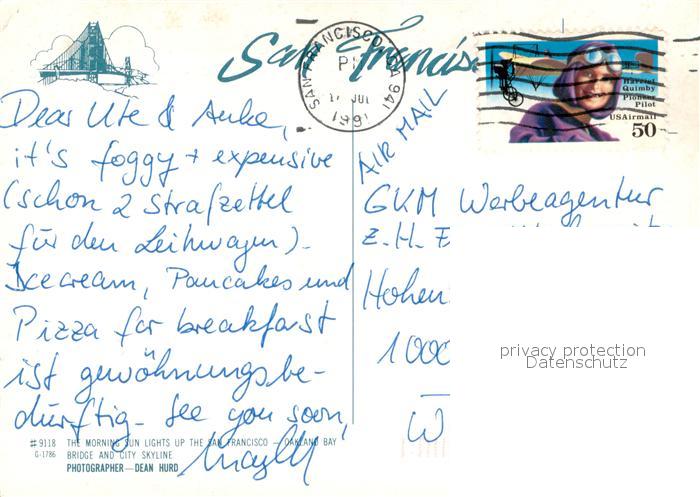 San Francisco
SAN FRANCISCO, CA 941
PM
17 JUL
1991
Harriet
Quimby
Pioneer
Pilot
USAirmail
50
AIR MAIL
Dear Ute & Anke,
it's foggy + expensive
(schon 2 Strafzettel
für den Leihwagen).
Icecream, Pancakes und
Pizza for breakfast
ist gewöhnungsbe-
dürftig. See you soon,
GKM Werbeagentur
z.H.
Hohen
1000
W
privacy protection
Datenschutz
#9118 THE MORNING SUN LIGHTS UP THE SAN FRANCISCO — OAKLAND BAY
G-1786 BRIDGE AND CITY SKYLINE
PHOTOGRAPHER—DEAN HURD